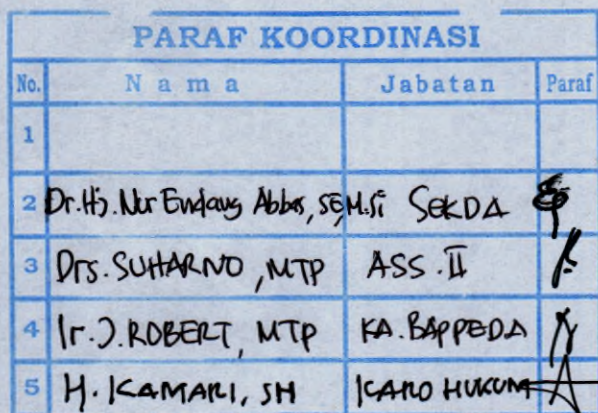 PARAF KOORDINASI
No. Nama Jabatan Paraf
1
2 Dr. Hj. Nur Endang Abbas, SE, M.Si SEKDA
3 Drs. SUHARNO, MTP ASS. II
4 Ir. J. ROBERT, MTP KA. BAPPEDA
5 H. KAMARI, SH KARO HUKUM